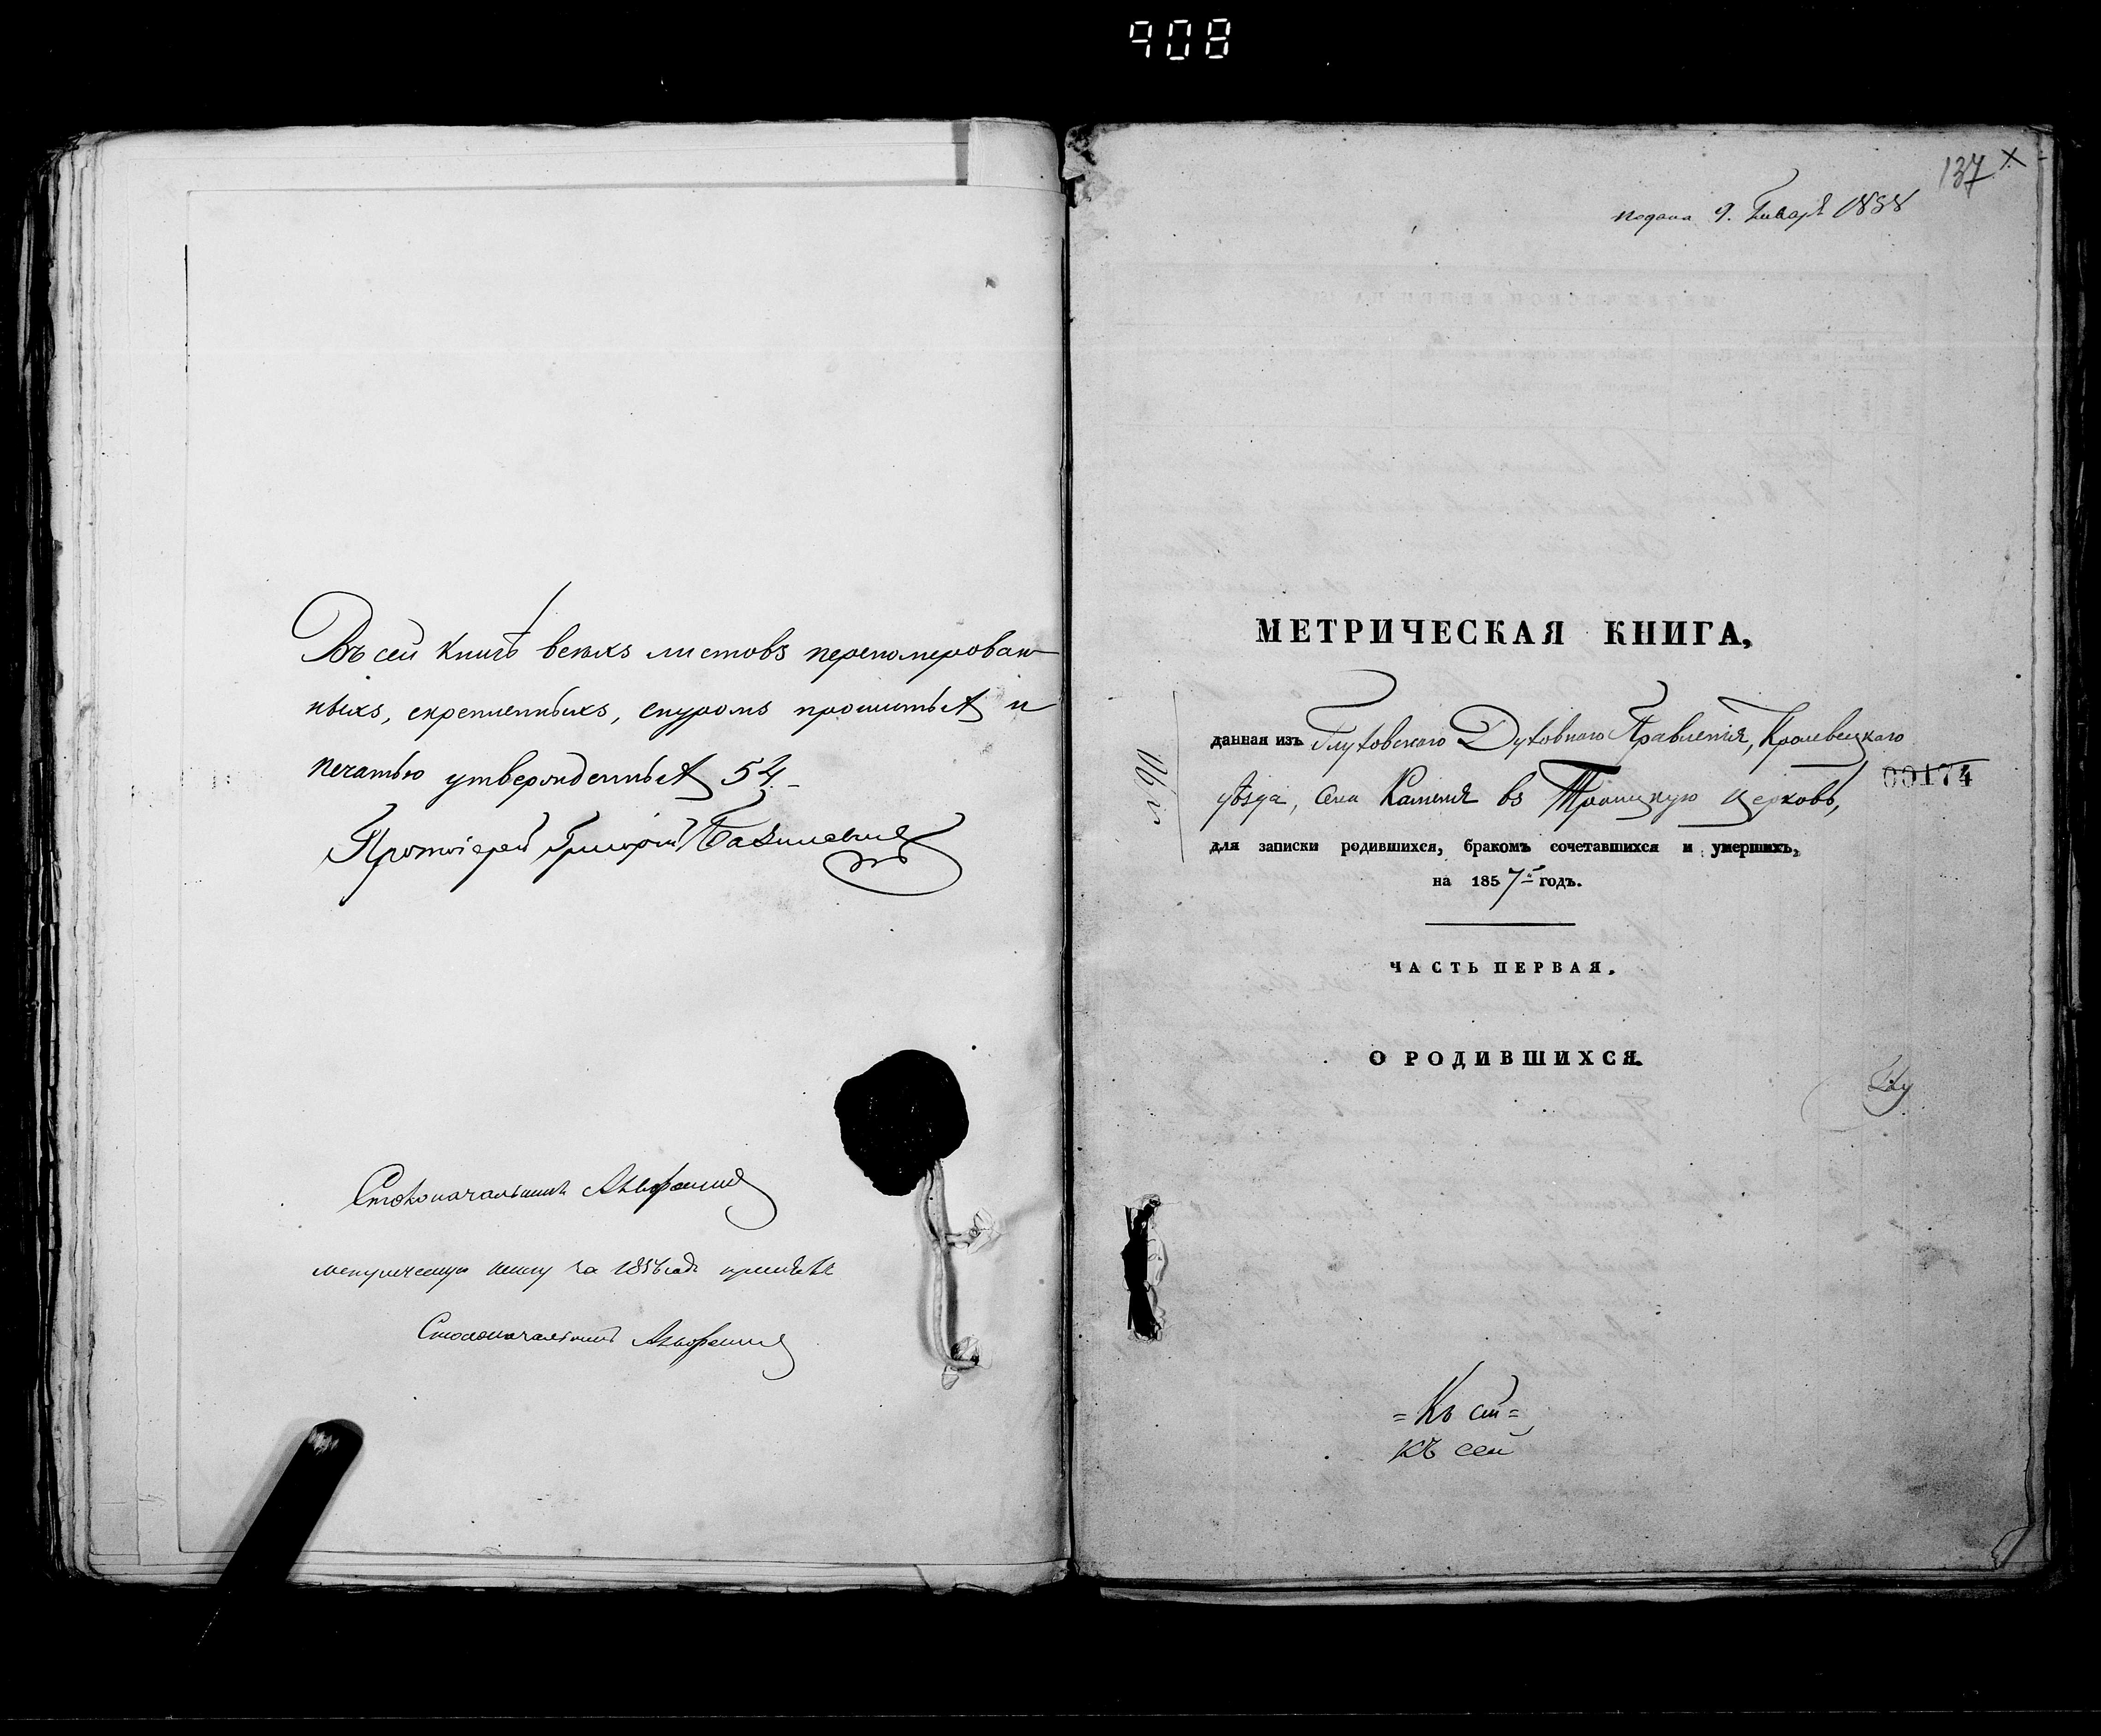 908
Въ сей книгѣ всѣхъ листовъ перенумерован
ныхъ, скрепленныхъ, снуромъ прошитыхъ и
печатью утвержденныхъ 54.
Протоіерей Григорій Базилевичъ
Столоначальникъ
метрическую книгу за 1856 годъ
Столоначальникъ
137 X
подана 9. Января 1858
МЕТРИЧЕСКАЯ КНИГА,
данная изъ Глуховского Духовного Правленія, Кролевецкаго
уѣзда, села Каменя въ Троицкую церковь,
00174
для записки родившихся, бракомъ сочетавшихся и умершихъ,
на 1857й годъ.
№ 90
ЧАСТЬ ПЕРВАЯ.
О РОДИВШИХСЯ.
= Къ сей =
Къ сей